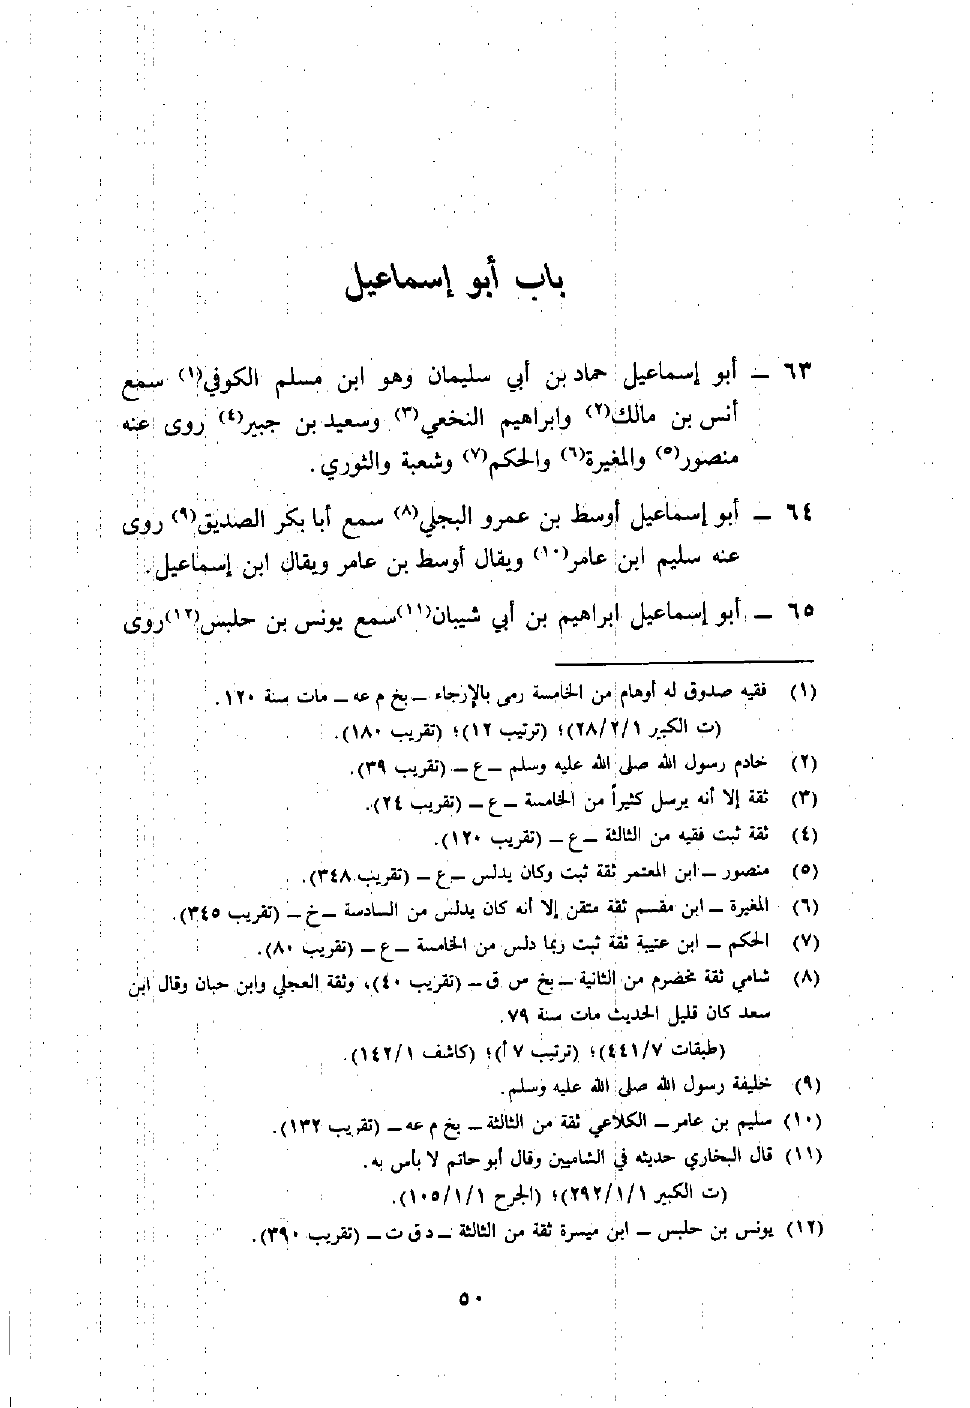 باب أبو إسماعيل
٦٣ ــ أبو إسماعيل حماد بن أبي سليمان وهو ابن مسلم الكوفي(١) سمع
أنس بن مالك(٢) وابراهيم النخعي(٣) وسعيد بن جبير(٤) روى عنه
منصور(٥) والمغيرة(٦) والحكم(٧) وشعبة والثوري.
٦٤ ــ أبو إسماعيل أوسط بن عمرو البجلي(٨) سمع أبا بكر الصديق(٩) روى
عنه سليم ابن عامر(١٠) ويقال أوسط بن عامر ويقال ابن إسماعيل.
٦٥ ــ أبو إسماعيل ابراهيم بن أبي شيبان(١١) سمع يونس بن حلبس(١٢) روى
(١) فقيه صدوق له أوهام من الخامسة رمى بالإرجاء ــ بخ م عه ــ مات سنة ١٢٠.
(ت الكبير ٢٨/٢/١)؛ (ترتيب ١٢)؛ (تقريب ١٨٠).
(٢) خادم رسول الله صلى الله عليه وسلم ــ ع ــ (تقريب ٣٩).
(٣) ثقة إلا أنه يرسل كثيراً من الخامسة ــ ع ــ (تقريب ٢٤).
(٤) ثقة ثبت فقيه من الثالثة ــ ع ــ (تقريب ١٢٠).
(٥) منصور ــ ابن المعتمر ثقة ثبت وكان يدلس ــ ع ــ (تقريب ٣٤٨).
(٦) المغيرة ــ ابن مقسم ثقة متقن إلا أنه كان يدلس من السادسة ــ خ ــ (تقريب ٣٤٥).
(٧) الحكم ــ ابن عتيبة ثقة ثبت ربما دلس من الخامسة ــ ع ــ (تقريب ٨٠).
(٨) شامي ثقة مخضرم من الثانية ــ بخ س ق ــ (تقريب ٤٠)، وثقة العجلي وابن حبان وقال ابن
سعد كان قليل الحديث مات سنة ٧٩.
(طبقات ٤٤١/٧)؛ (ترتيب ٧ أ)؛ (كاشف ١٤٢/١).
(٩) خليفة رسول الله صلى الله عليه وسلم.
(١٠) سليم بن عامر ــ الكلاعي ثقة من الثالثة ــ بخ م عه ــ (تقريب ١٣٢).
(١١) قال البخاري حديثه في الشاميين وقال أبو حاتم لا بأس به.
(ت الكبير ٢٩٢/١/١)؛ (الجرح ١٠٥/١/١).
(١٢) يونس بن حلبس ــ ابن ميسرة ثقة من الثالثة ــ د ق ت ــ (تقريب ٣٩٠).
٥٠